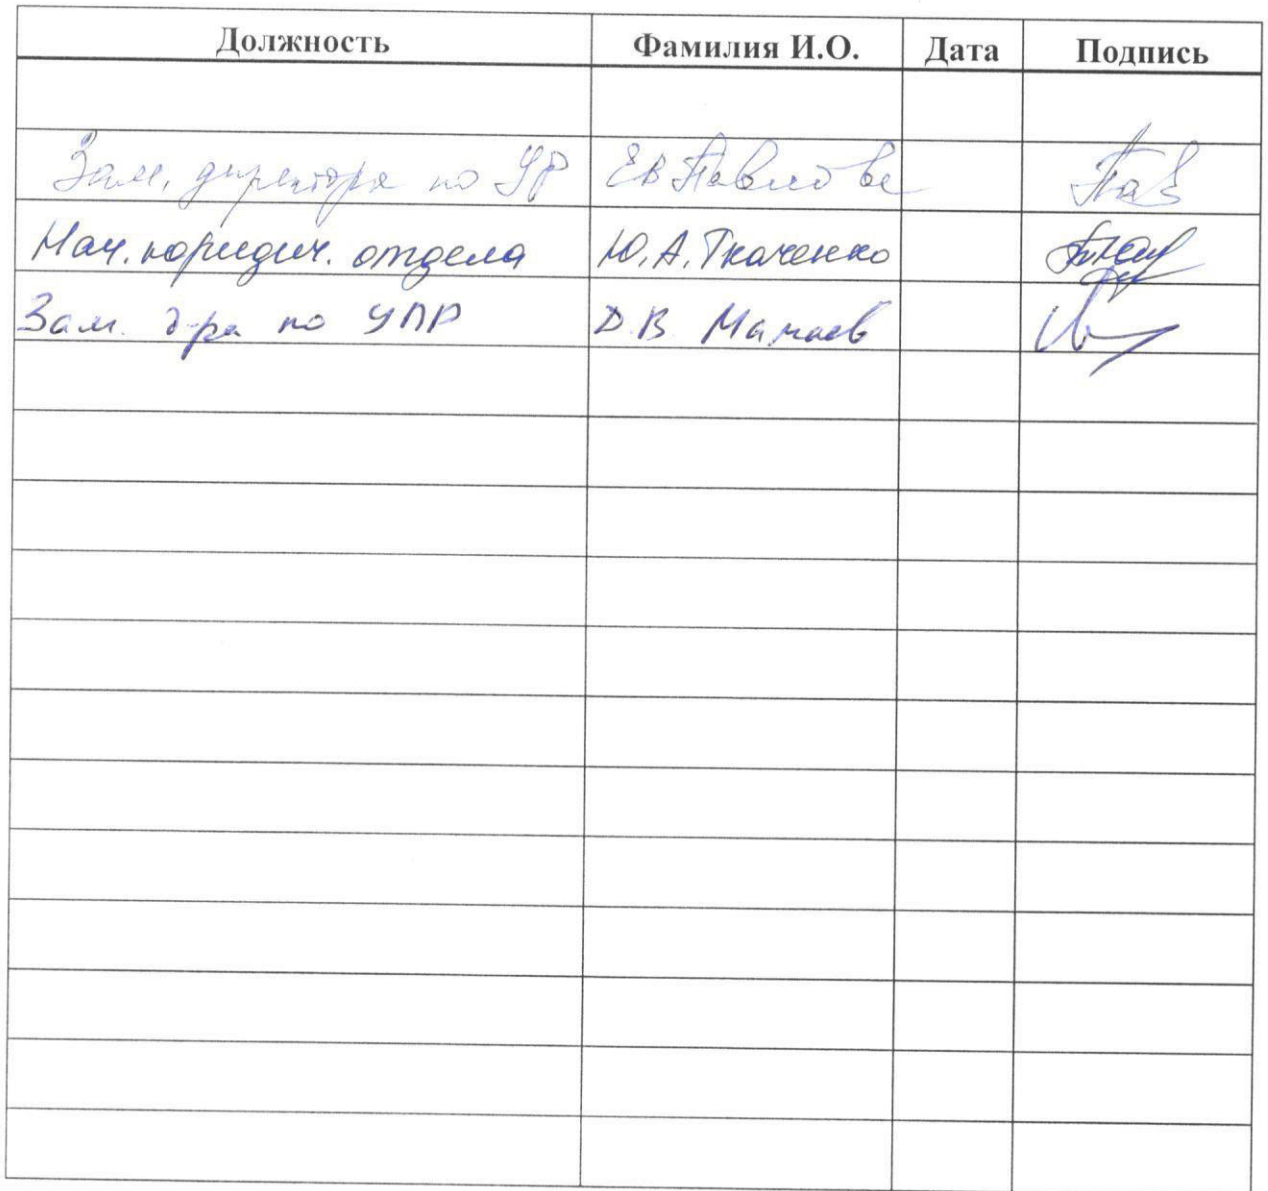 Должность Фамилия И.О. Дата Подпись
Зам. директора по УР ЕВ Павлова
Нач. юридич. отдела Ю.А. Ткаченко
Зам. д-ра по УПР Д.В. Мамаев